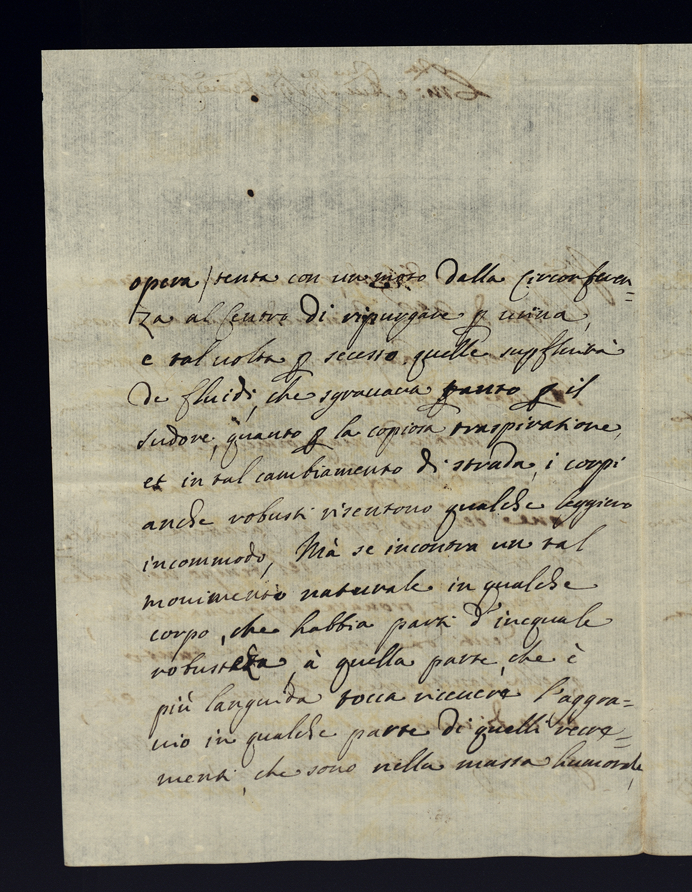 opera / tenta con un moto dalla Circonferen=
za al Centro di ripurgare p urina,
e tal uolta p secesso, quelle supfluità
de fluidi, che sgrauaua tanto p il
sudore, quanto p la copiosa traspiratione,
et in tal cambiamento di strada, i corpi
anche robusti risentono qualche leggiero
incommodo, Mà se incontra un tal
mouimento naturale in qualche
corpo, che habbia parti d'inequale
robustezza, à quella parte, che è
più languida tocca riceuere l'aggra=
uio in qualche parte di quelli recre=
menti, che sono nella massa humorale,